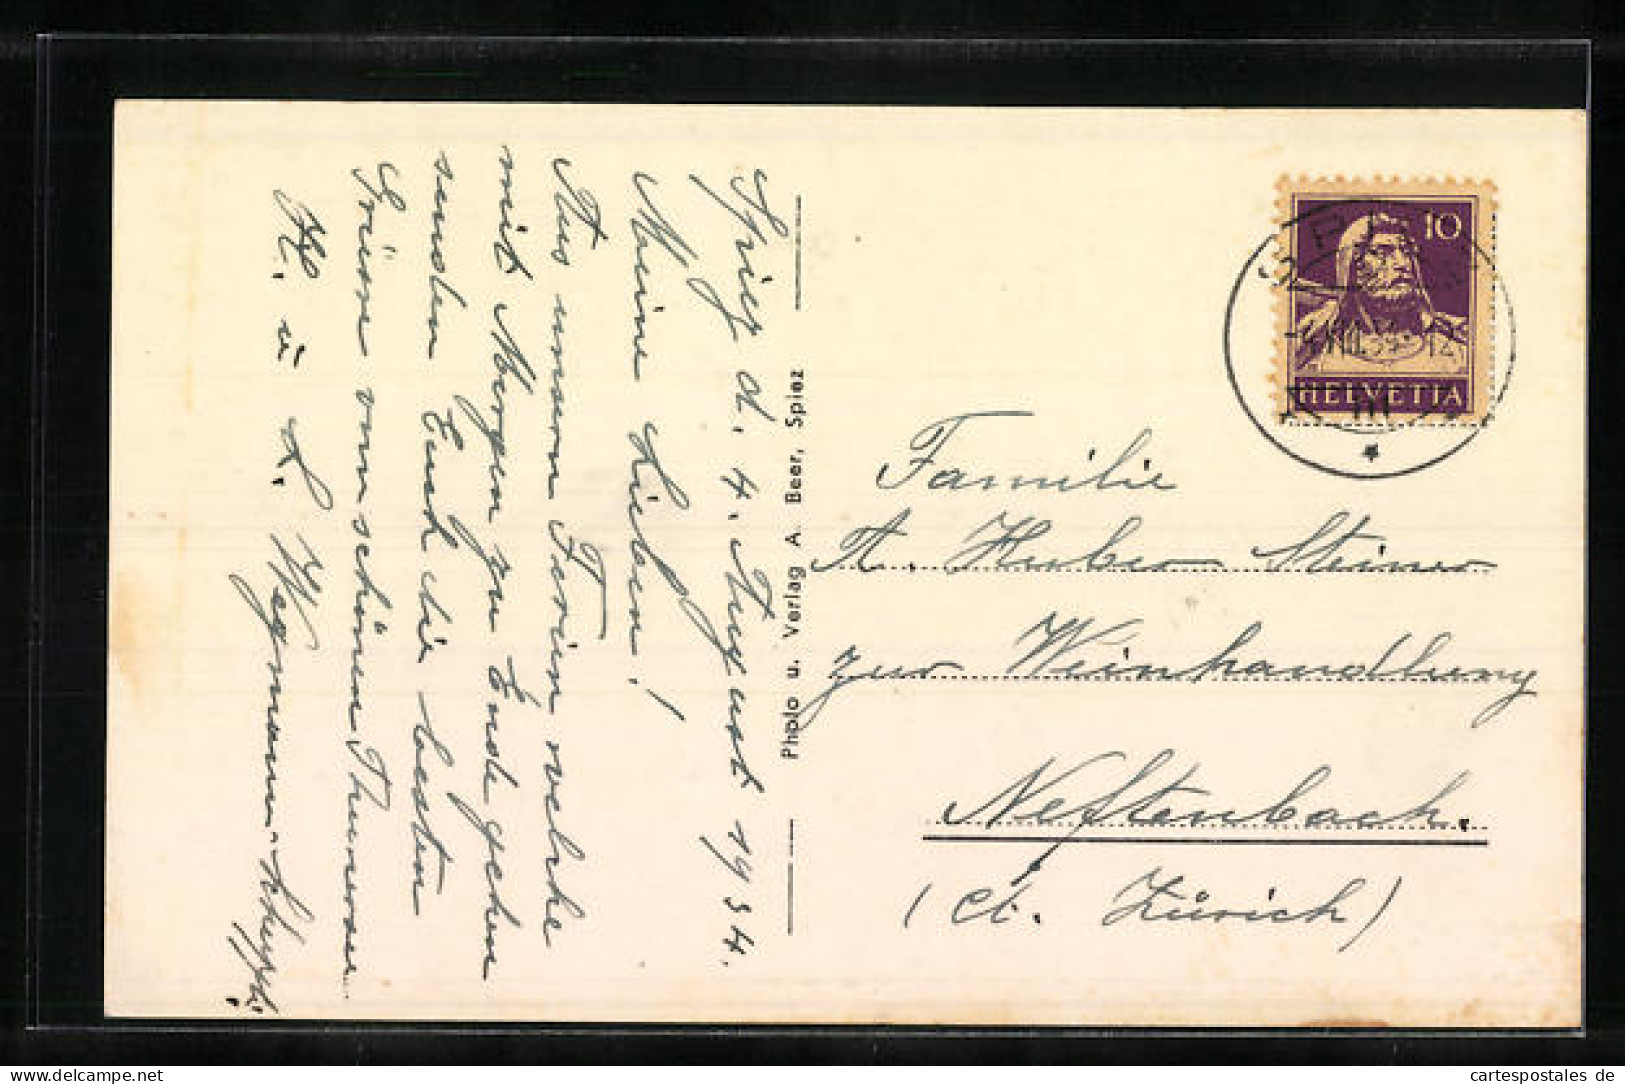 Spiez d. 4. August 1934.
Meine Lieben!
Aus unsern Ferien welche
mit Morgen zu Ende gehen
senden Euch die besten
Grüsse vom schönen Thunersee
H. u. L. Wegmann-
Photo u. Verlag A. Beer, Spiez
10
HELVETIA
SPIEZ
-4.VIII.34.-12
Familie
A. Huber-Steiner
zur Weinhandlung
Neftenbach.
(Ct. Zürich)
cartespostales de